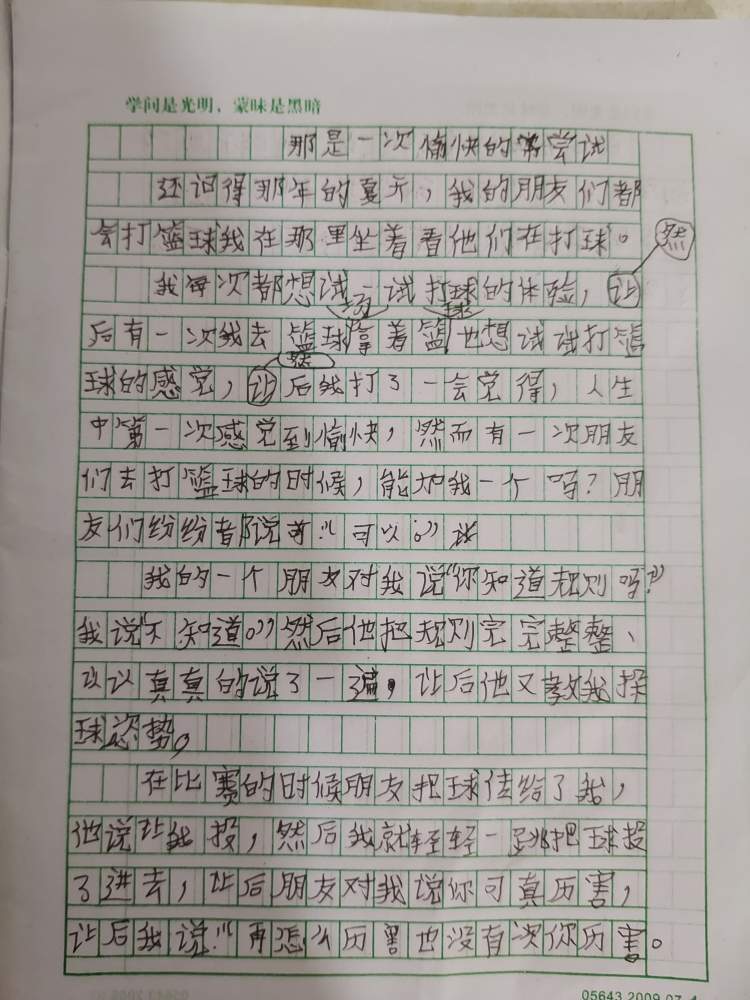 学问是光明,蒙昧是黑暗
那是一次愉快的尝试
还记得那年的夏天,我的朋友们都
会打篮球我在那里坐着看他们在打球。
然
我每次都想试一试打球的体验,让
场 球
后有一次我去篮球拿着篮也想试试打篮
然
球的感觉,让后我打了一会觉得,人生
中第一次感觉到愉快,然而有一次朋友
们去打篮球的时候,能加我一个吗?朋
友们纷纷都说:“可以。”
我的一个朋友对我说“你知道规则吗?”
我说“不知道。”然后他把规则完完整整、
认认真真的说了一遍,让后他又教我投
球姿势。
在比赛的时候朋友把球传给了我,
他说让我投,然后我就轻轻一跳把球投
了进去,让后朋友对我说你可真厉害,
让后我说:“再怎么厉害也没有次你厉害。
05643.2009.07